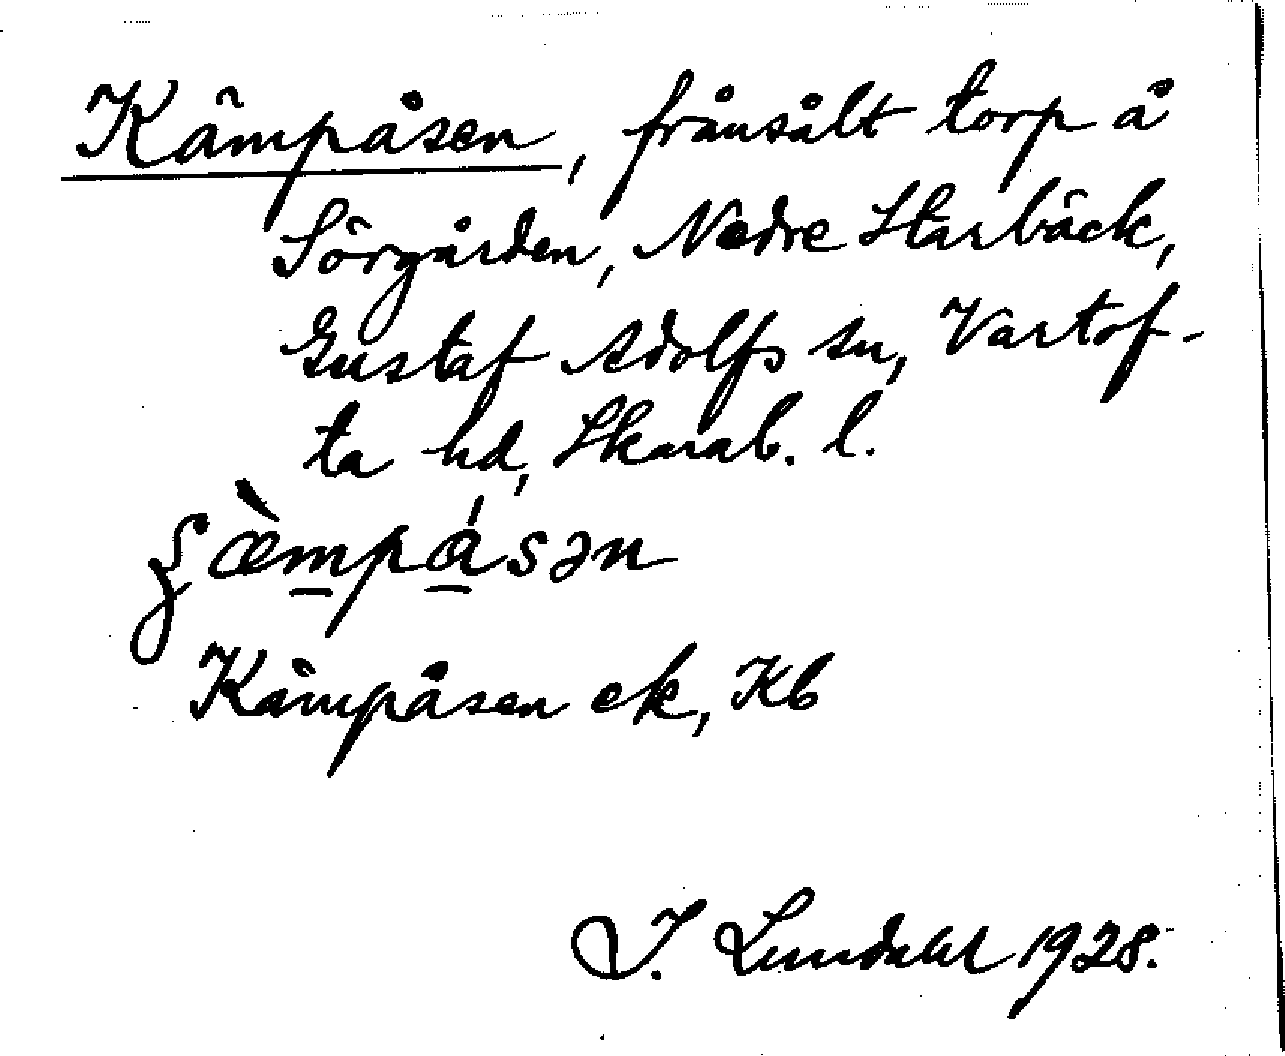 Kämpåsen, frånsålt torp å
Sörgården, Nedre Starbäck,
Gustaf Adolfs sn, Vartof-
ta hd, Skarab. l.
Kämpåsen ek, Kb
I. Lundahl 1928.